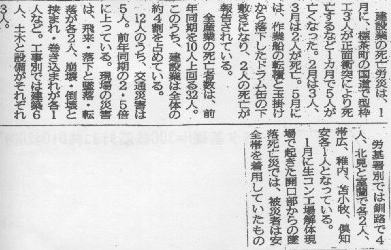 建設業の死亡労災は、1
月に、標茶町の国道で型枠
工3人が正面衝突により死
亡するなど1カ月で5人が
亡くなった。2月は3人、
3月は2人が死亡。5月に
は、作業船の転覆と玉掛け
から落下したドラム缶の下
敷きになり、2人の死亡が
報告されている。
全産業の死亡者数は、前
年同期を10人上回る32人。
このうち、建設業は全体の
約4割を占めている。
12人のうち、交通災害は
5人。前年同期の2・5倍
に上っている。現場の災害
は、飛来・落下と墜落・転
落が各2人、崩壊・倒壊と
挟まれ・巻き込まれが各1
人など。工事別では建築6
人、土木と設備がそれぞれ
3人。
労基署別では釧路で4
人、北見と室蘭で各2人、
帯広、稚内、苫小牧、倶知
安各1人となっている。
1月に生コン工場解体現
場で起きた開口部からの墜
落死亡災では、被災者は安
全帯を着用していたもの